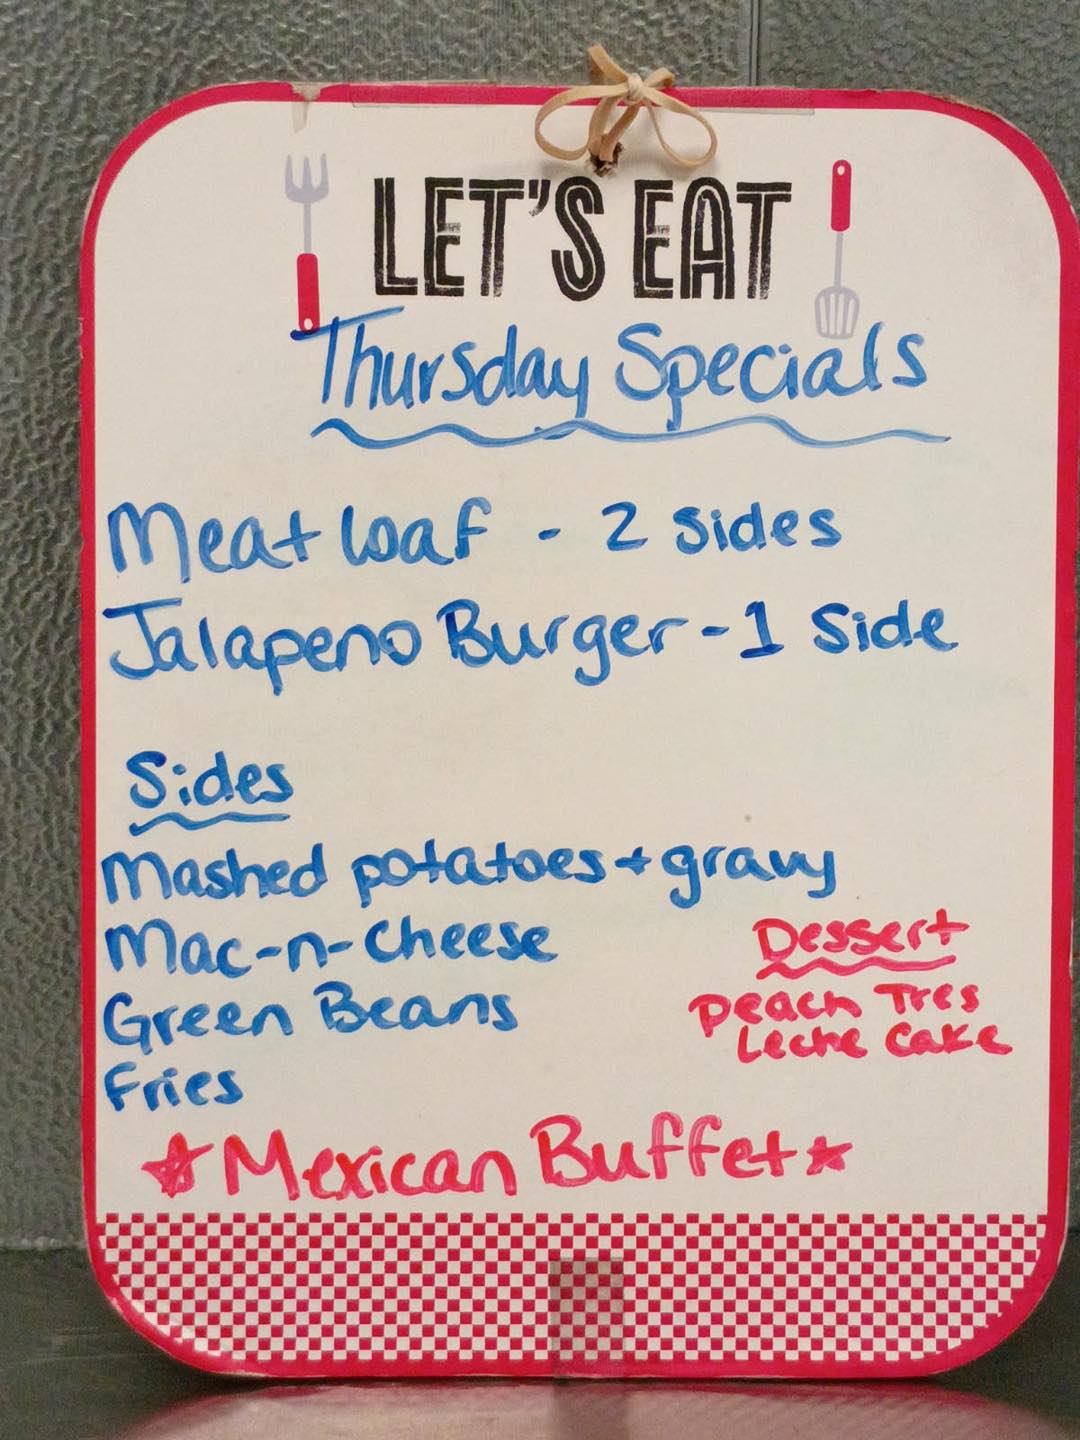 LET'S EAT
Thursday Specials
Meat loaf - 2 sides
Jalapeno Burger - 1 side
Sides
Mashed potatoes + gravy
Mac-n-Cheese
Green Beans
Fries
Dessert
Peach Tres
Leche Cake
☆Mexican Buffet☆